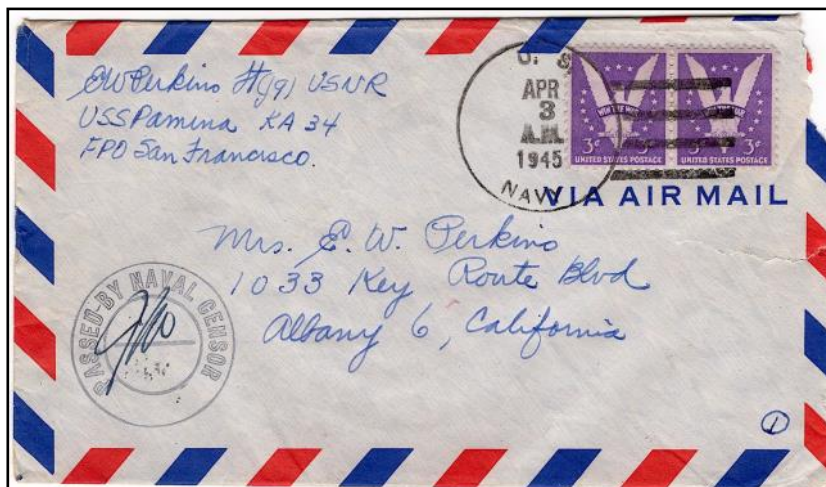 EW Perkins Lt(jg) USNR
USS Pamina KA 34
FPO San Francisco.
U. S.
APR
3
A.M.
1945
NAVY
WIN THE WAR
3¢ 3¢
UNITED STATES POSTAGE
3¢
UNITED STATES POSTAGE
VIA AIR MAIL
Mrs. E. W. Perkins
1033 Key Route Blvd
Albany 6, California
PASSED BY NAVAL CENSOR
1